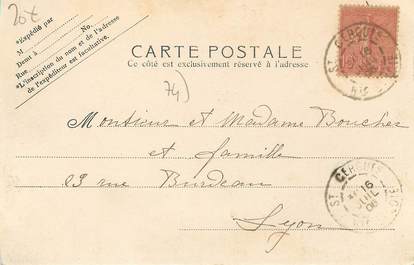 20€
*Expédié par
M No.
Demt à
Rue
*L'inscription du nom et de l'adresse
de l'expéditeur est facultative.
CARTE POSTALE
Ce côté est exclusivement réservé à l'adresse
74)
Monsieur et Madame Boucher
et famille
23 rue Burdeau
Lyon
ST CERGUES
16
JUIL
06